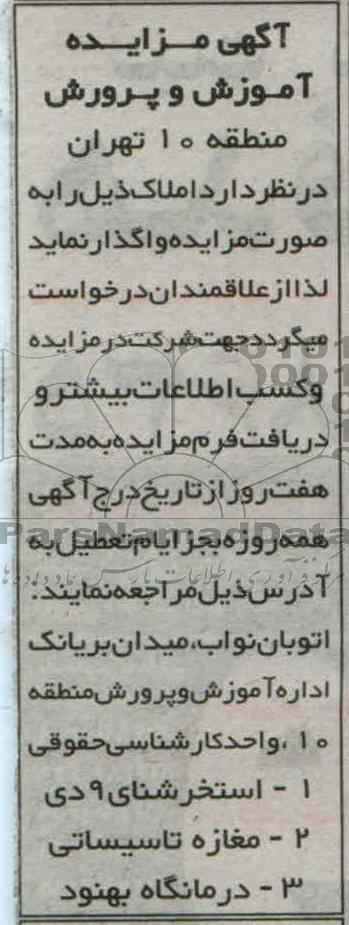 آگهی مزایده
آموزش و پرورش
منطقه ۱۰ تهران
در نظر دارد املاک ذیل را به
صورت مزایده واگذار نماید
لذا از علاقمندان درخواست
میگردد جهت شرکت در مزایده
و کسب اطلاعات بیشتر و
دریافت فرم مزایده به مدت
هفت روز از تاریخ درج آگهی
همه روزه بجز ایام تعطیل به
ParsNamadData
آدرس ذیل مراجعه نمایند:
اتوبان نواب، میدان بریانک
اداره آموزش و پرورش منطقه
۱۰، واحد کارشناسی حقوقی
۱ - استخر شنای ۹ دی
۲ - مغازه تاسیساتی
۳ - درمانگاه بهنود